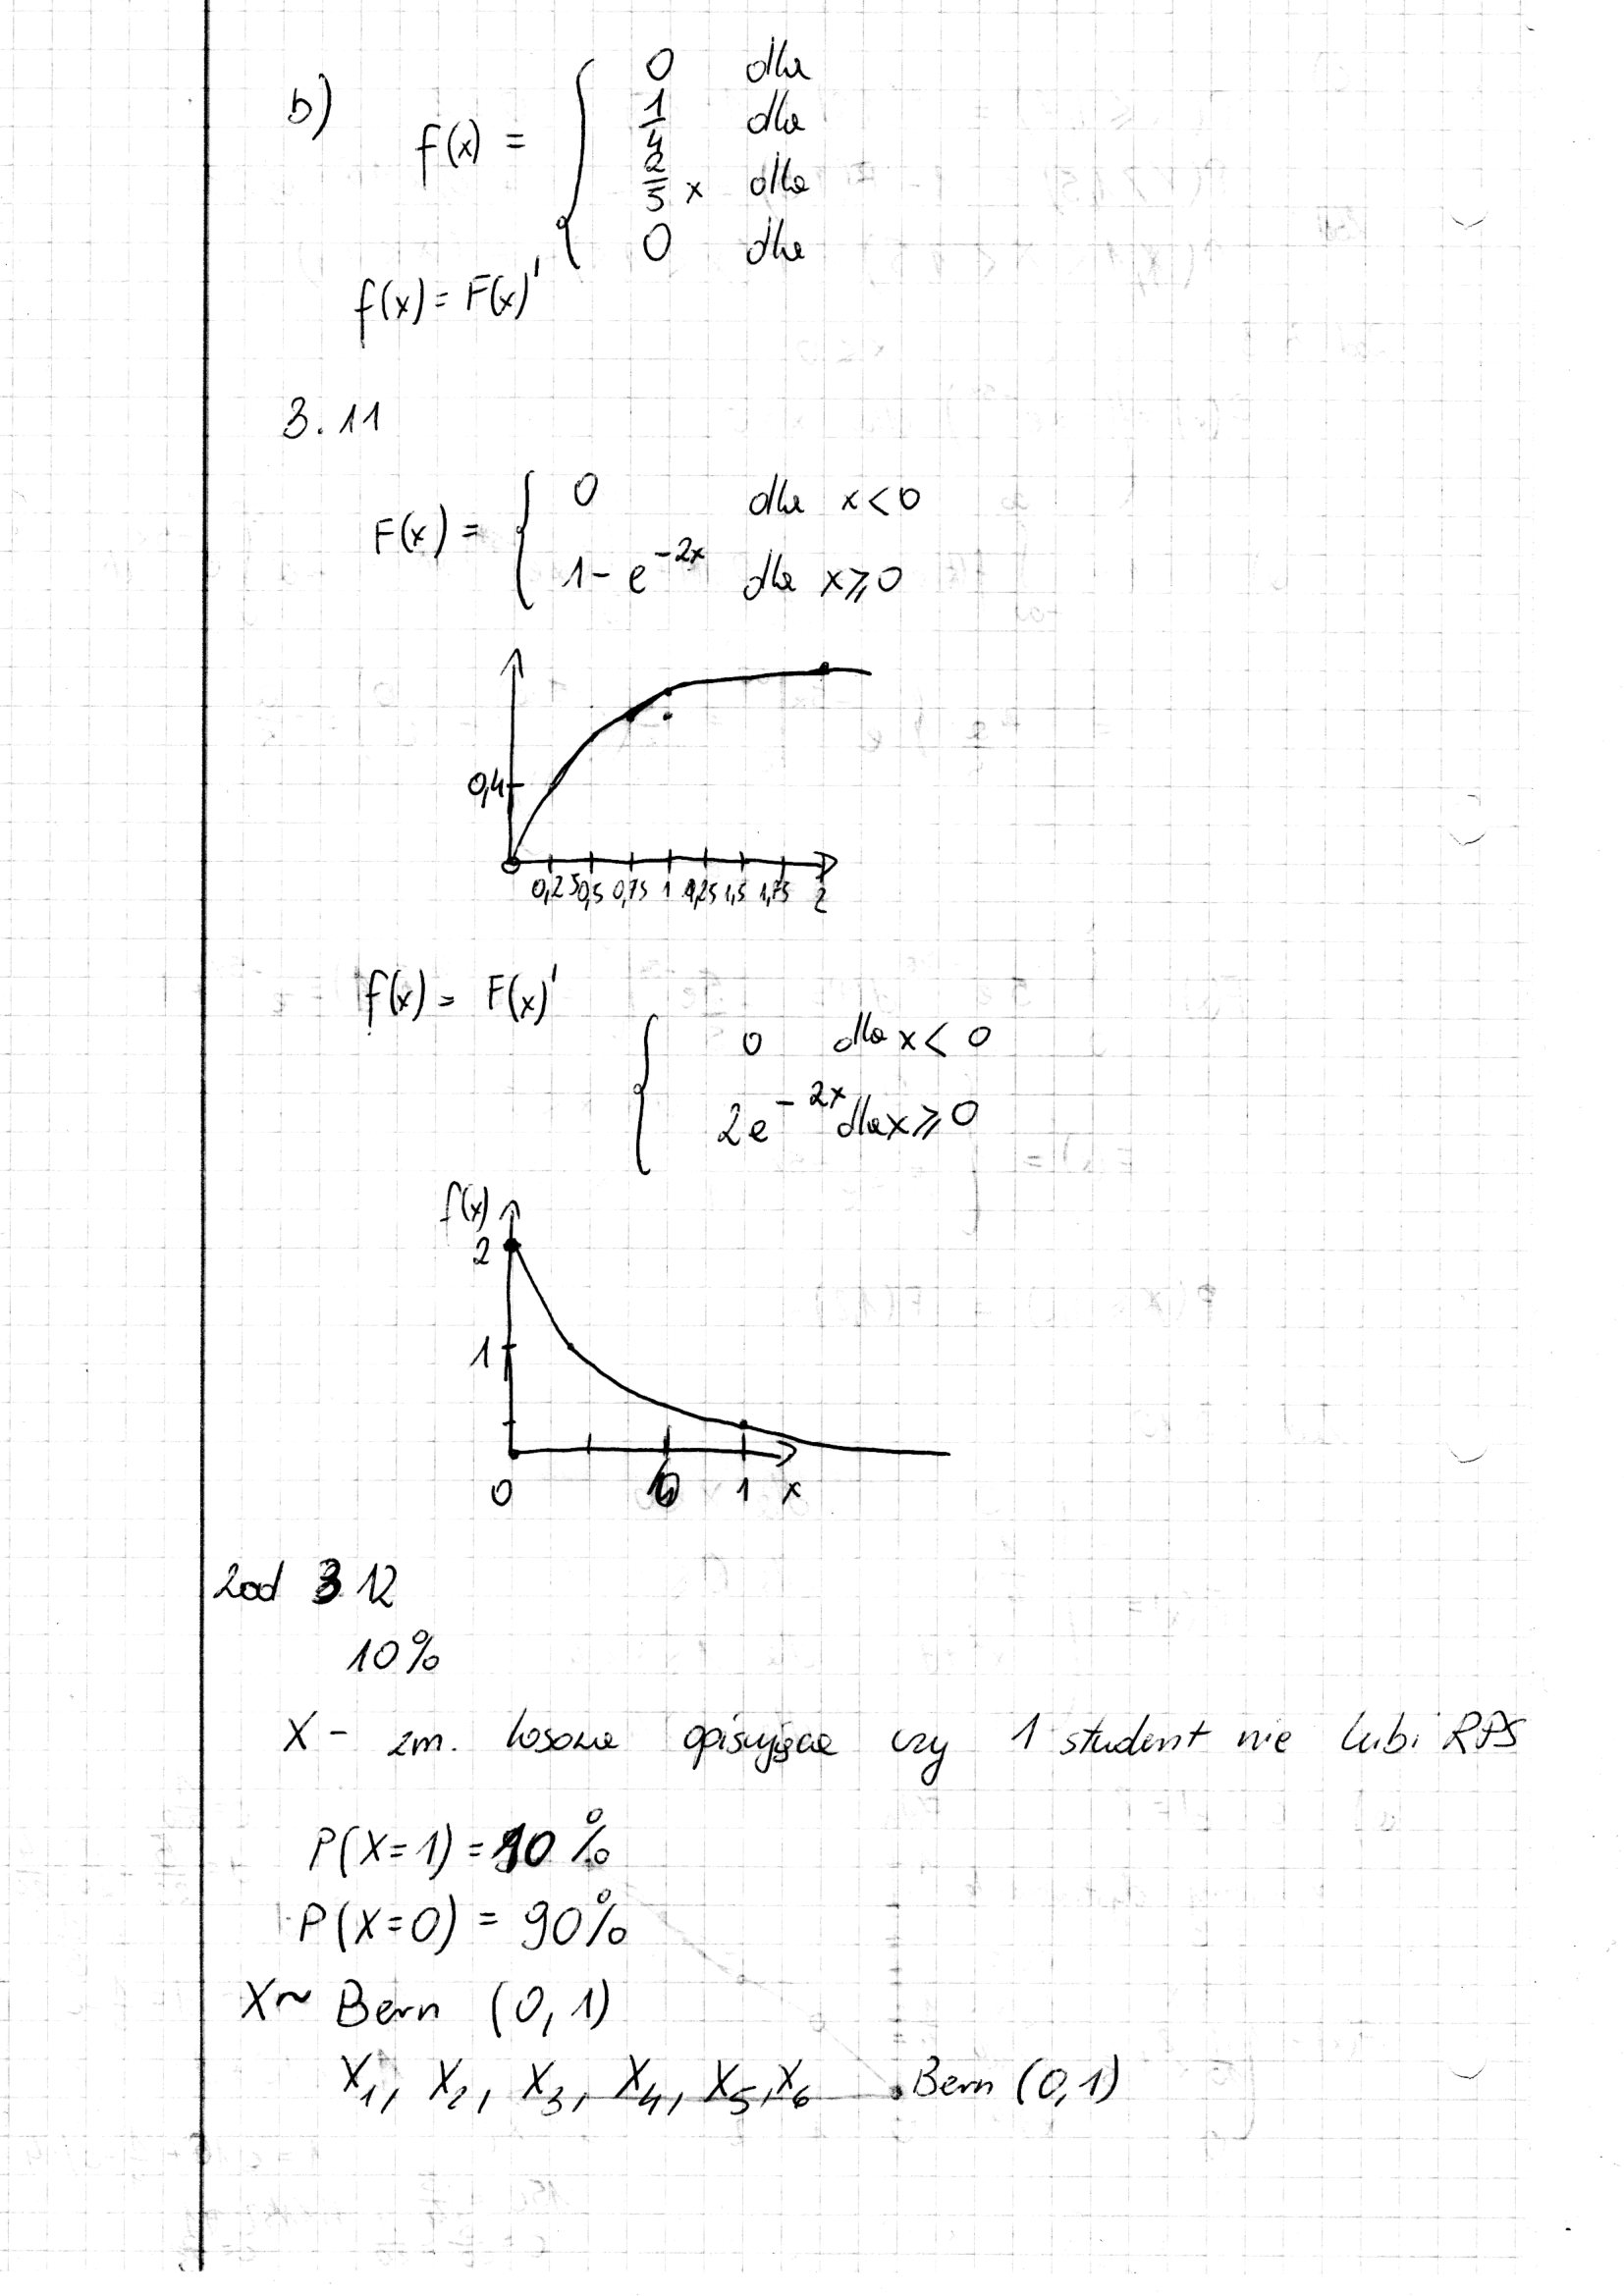 b)
f(x) = { 0 dla
1/4 dla
2/5 x dla
0 dla
f(x) = F(x)'
3.11
F(x) = { 0 dla x<0
1-e^-2x dla x⩾0
0,4
0,25 0,5 0,75 1 1,25 1,5 1,75 2
f(x) = F(x)'
{ 0 dla x< 0
2e^-2x dla x⩾0
f(x)
2
1
0 1 x
Zad 3 12
10%
X - zm. losowa opisująca czy 1 student nie lubi RPS
P(X=1) = 10%
P(X=0) = 90%
X~ Bern (0,1)
X1, X2, X3, X4, X5, X6 Bern (0,1)